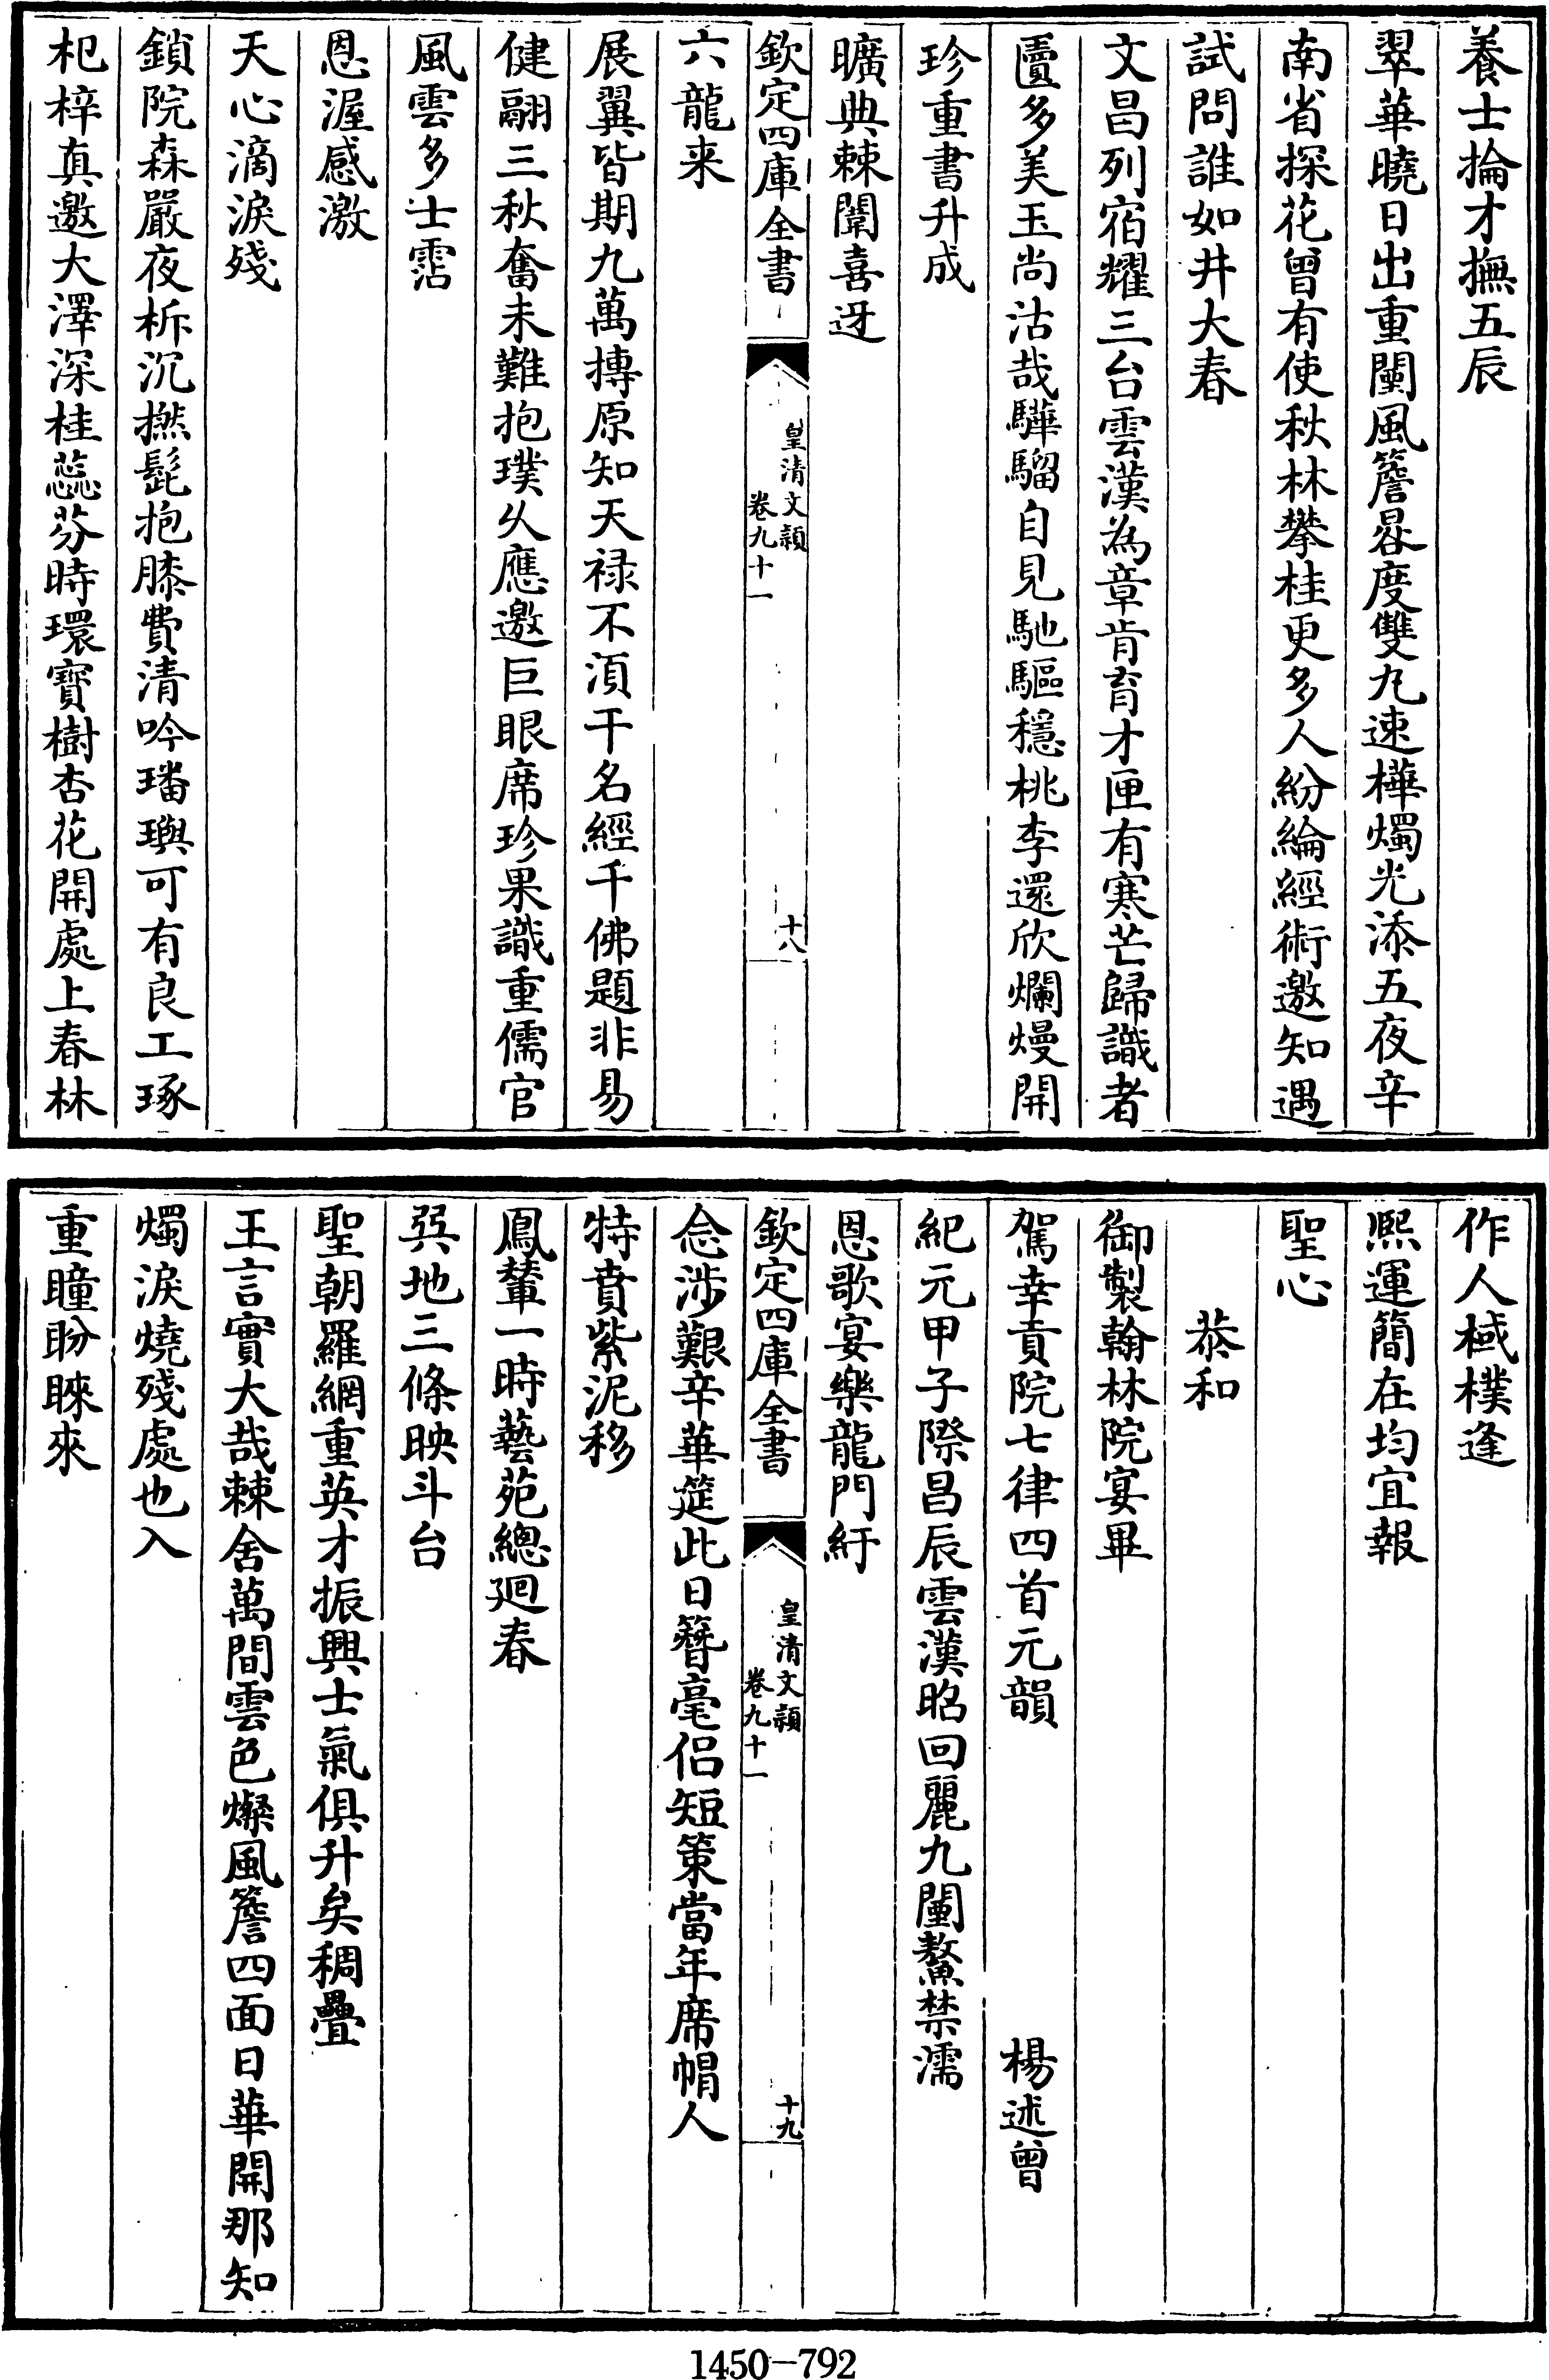 養士掄才撫五辰
翠華曉日出重闉風簷晷度雙丸速樺燭光添五夜辛
南省探花曾有使秋林攀桂更多人紛綸經術邀知遇
試問誰如井大春
文昌列宿耀三台雲漢為章肯育才匣有寒芒歸識者
匵多美玉尚沽哉驊騮自見馳驅穩桃李還欣爛熳開
珍重書升成
曠典棘闈喜迓
欽定四庫全書
皇清文穎
卷九十一
十八
六龍来
展翼皆期九萬摶原知天禄不湏干名經千佛題非易
健翮三秋奮未難抱璞久應邀巨眼席珍果識重儒官
風雲多士霑
恩渥感激
天心滴淚殘
鎖院森嚴夜柝沉撚髭抱膝費清吟璠璵可有良工琢
杞梓真邀大澤深桂蕊芬時環寶樹杏花開處上春林
作人棫樸逢
熙運簡在均宜報
聖心
恭和
御製翰林院宴畢
駕幸貢院七律四首元韻
楊述曾
紀元甲子際昌辰雲漢昭回麗九闉鰲禁濡
恩歌宴樂龍門紆
欽定四庫全書
皇清文穎
卷九十一
十九
念涉艱辛華筵此日簪毫侣短策當年席帽人
特賁紫泥移
鳳輦一時藝苑總廻春
㢲地三條映斗台
聖朝羅網重英才振興士氣俱升矣稠疊
王言實大哉棘舍萬間雲色燦風簷四面日華開那知
燭淚燒殘處也入
重瞳盼睞來
1450—792